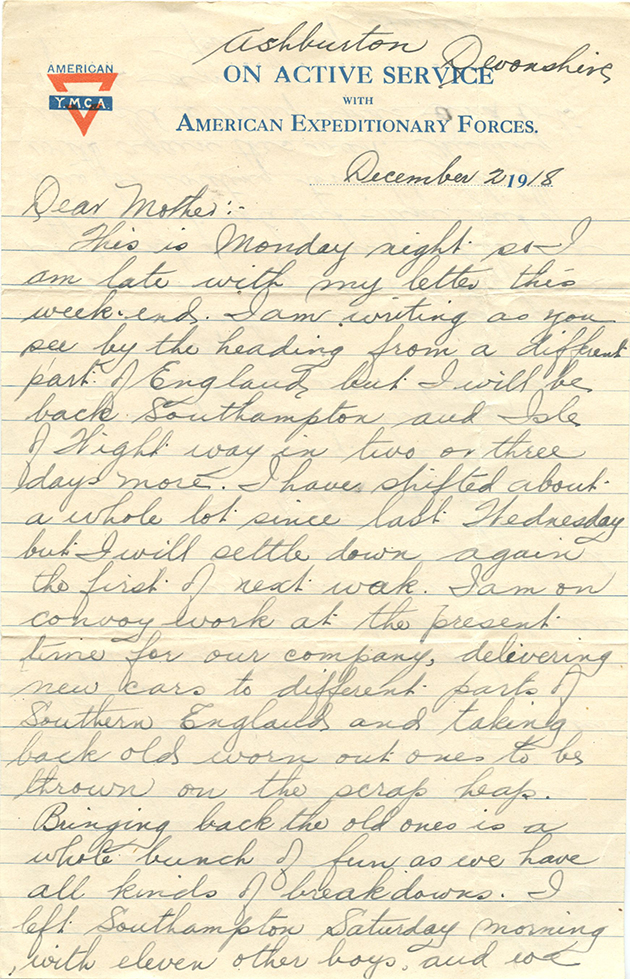 Ashburton Devonshire
AMERICAN
Y.M.C.A.
ON ACTIVE SERVICE
WITH
AMERICAN EXPEDITIONARY FORCES.
December 2 1918
Dear Mother:-
This is Monday night so I
am late with my letter this
week-end. I am writing as you
see by the heading from a different
part of England, but I will be
back Southampton and Isle
of Wight way in two or three
days more. I have shifted about
a whole lot since last Wednesday
but I will settle down again
the first of next week. I am on
convoy work at the present
time for our company, delivering
new cars to different parts of
Southern England and taking
back old worn out ones to be
thrown on the scrap heap.
Bringing back the old ones is a
whole bunch of fun as we have
all kinds of breakdowns. I
left Southampton Saturday morning
with eleven other boys, and we